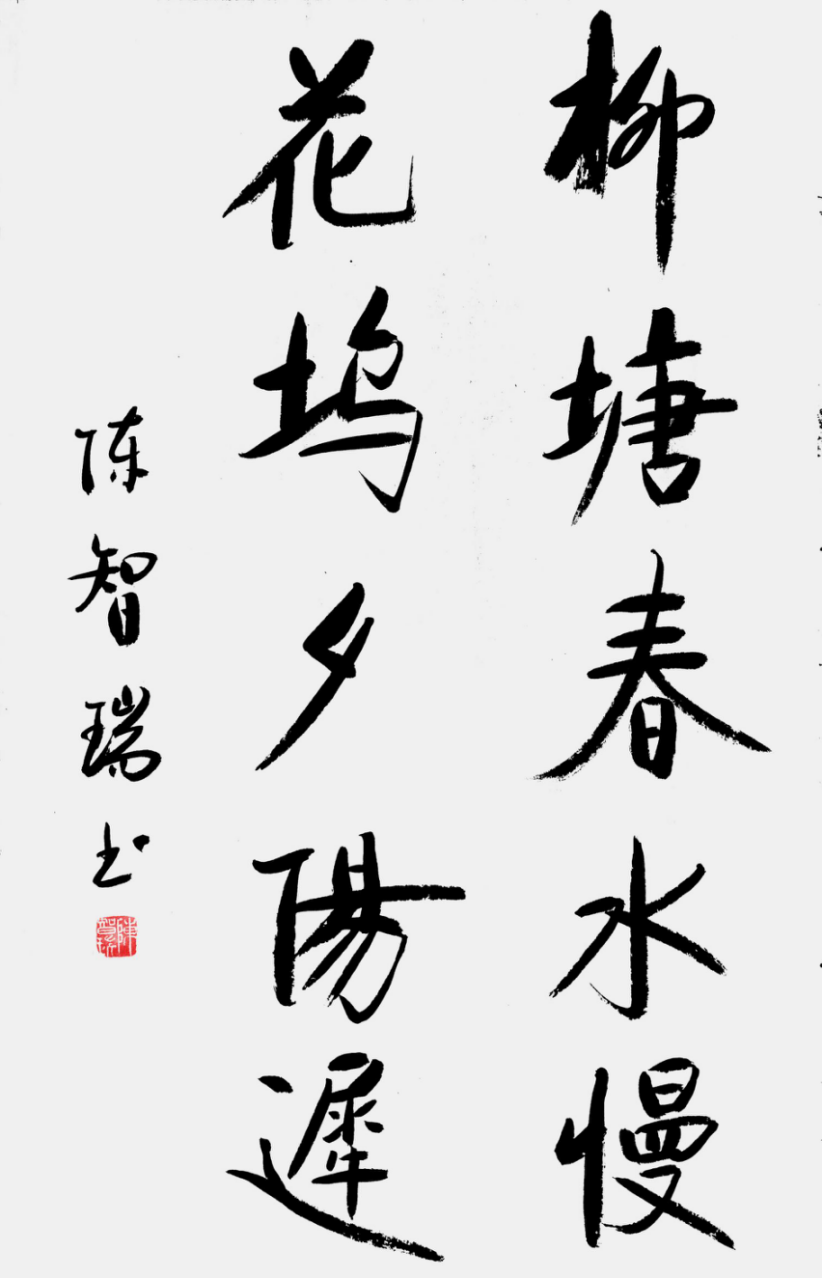 柳塘春水慢
花坞夕陽遲
陈智瑞书